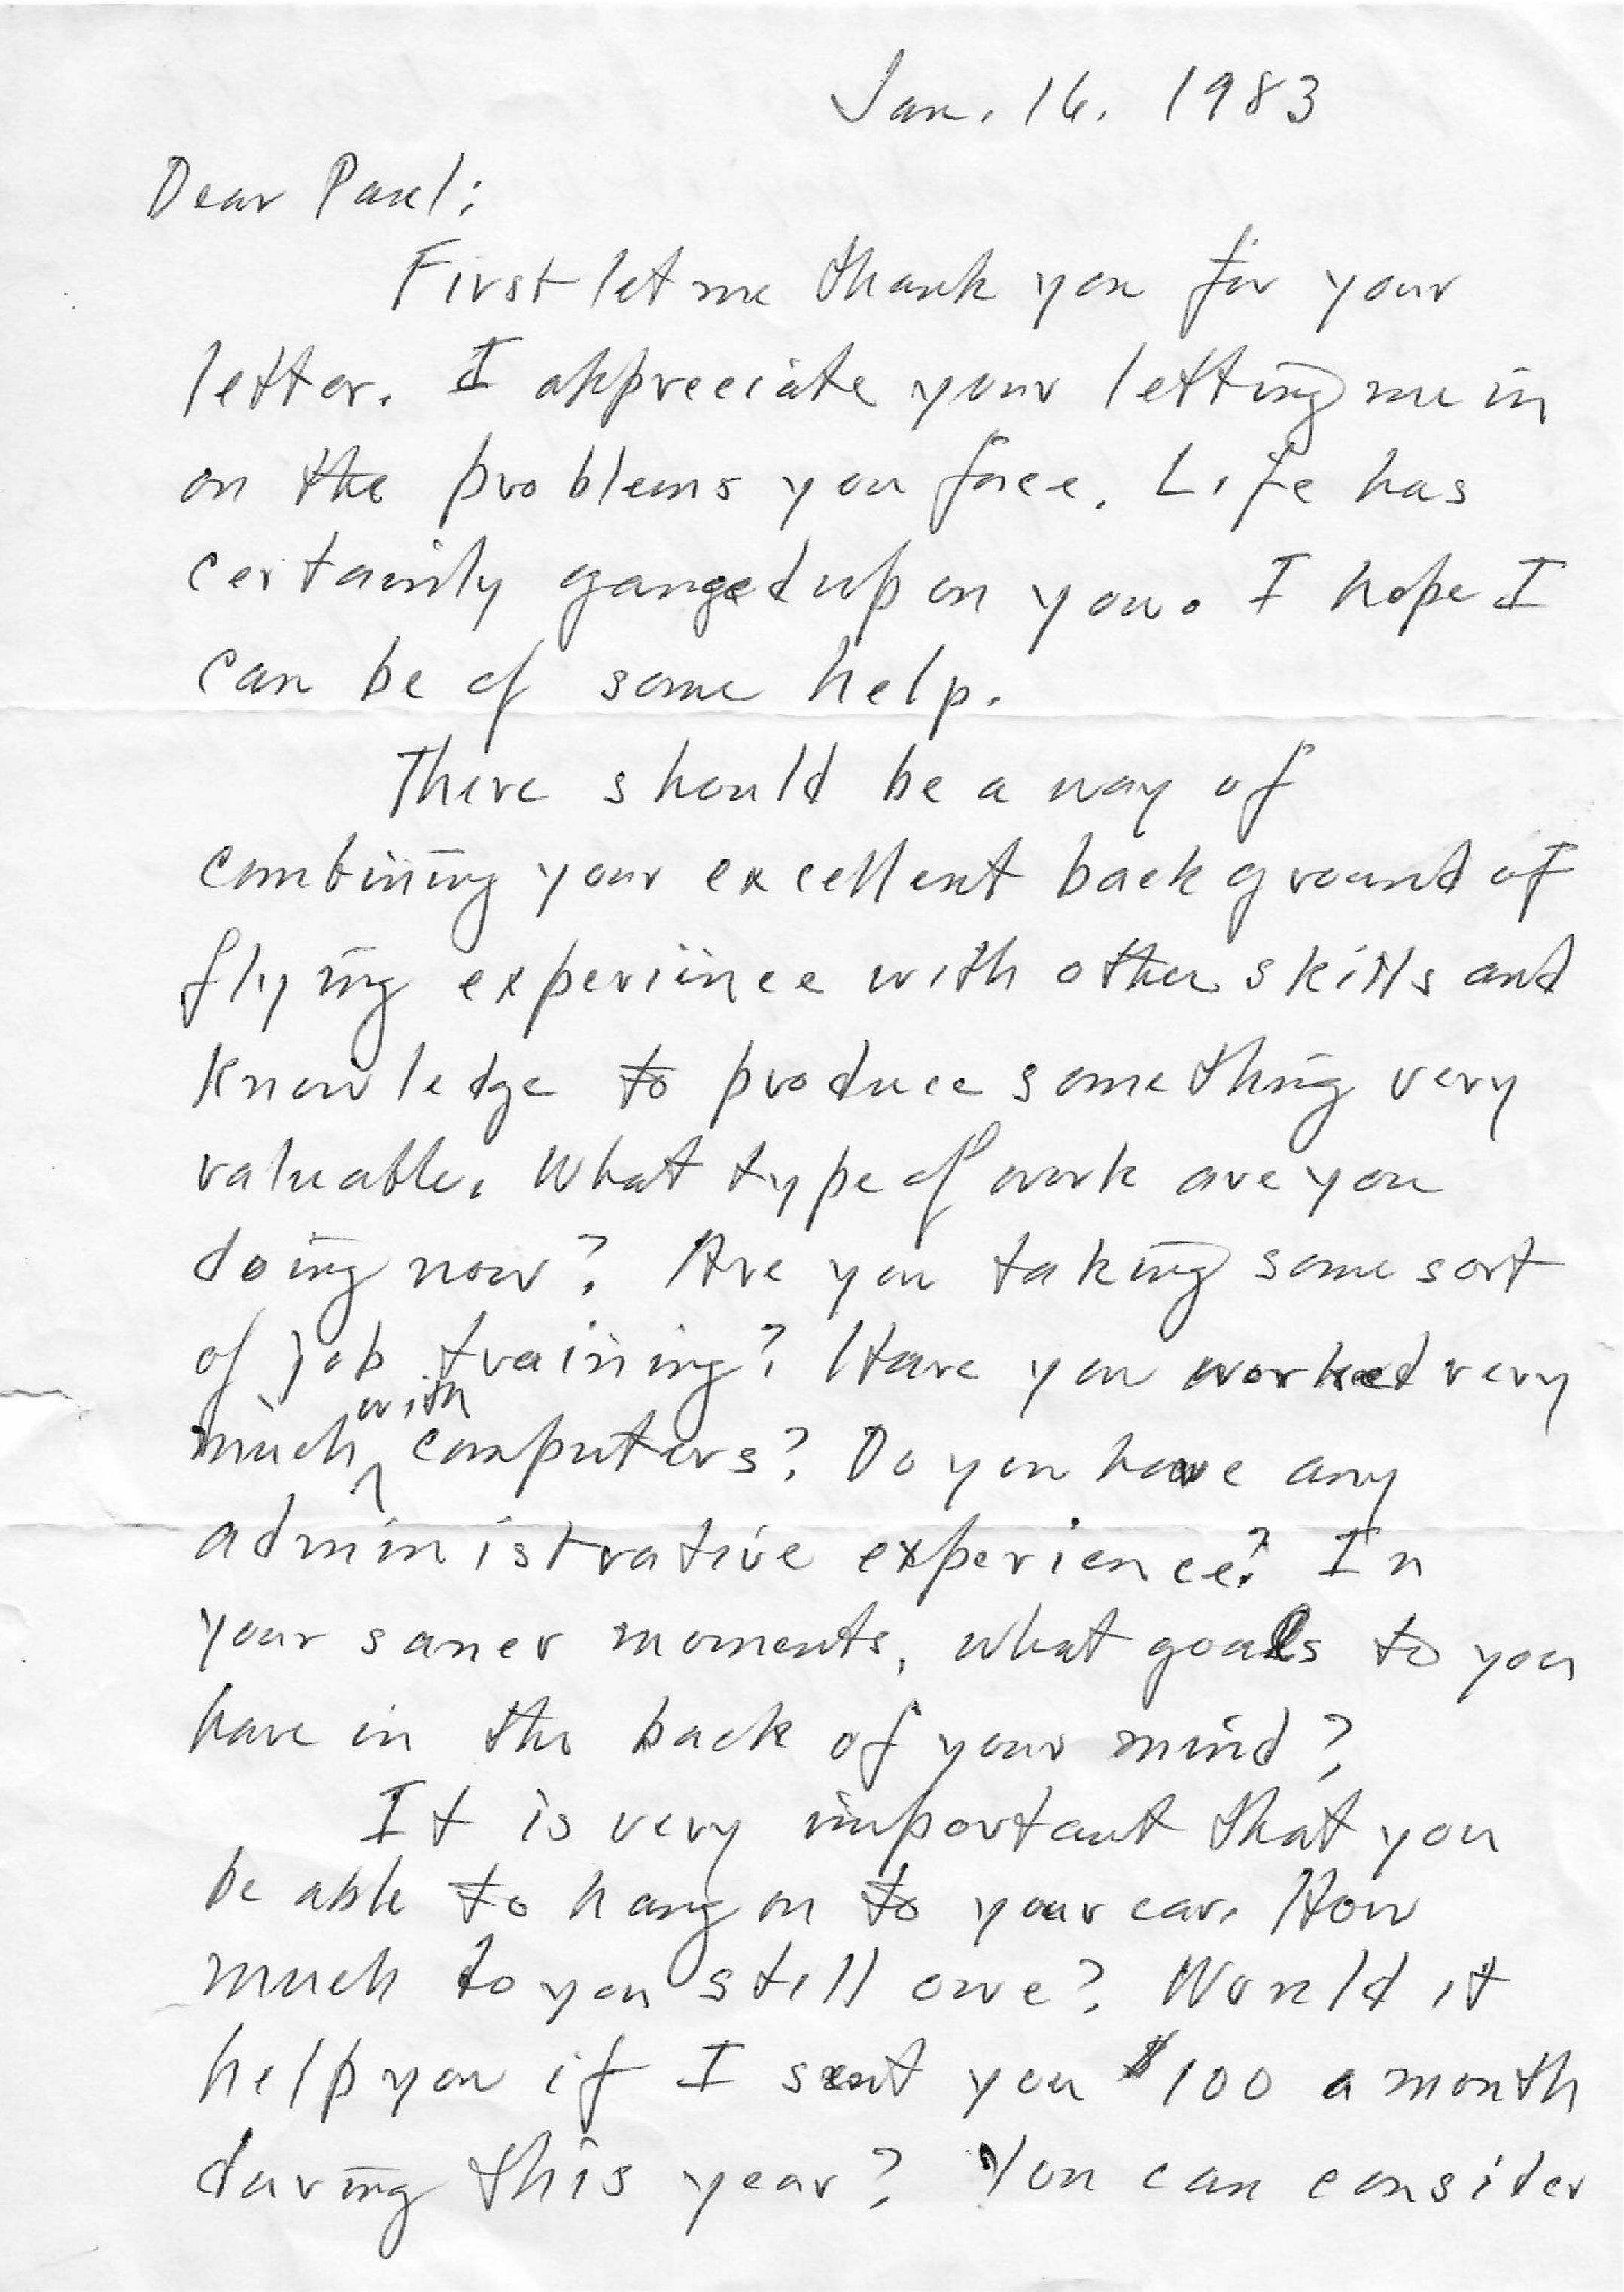 Jan. 16. 1983
Dear Paul;
First let me thank you for your
letter. I appreciate your letting me in
on the problems you face. Life has
certainly ganged up on you. I hope I
can be of some help.
There should be a way of
combining your excellent background of
flying experiince with other skills and
knowledge to produce something very
valuable. What type of work are you
doing now? Are you taking some sort
of job training? Have you worked very
much with computers? Do you have any
administrative experience? In
your saner moments, what goals to you
have in the back of your mind?
It is very important that you
be able to hang on to your car. How
much to you still owe? Would it
help you if I sent you $100 a month
during this year? You can consider